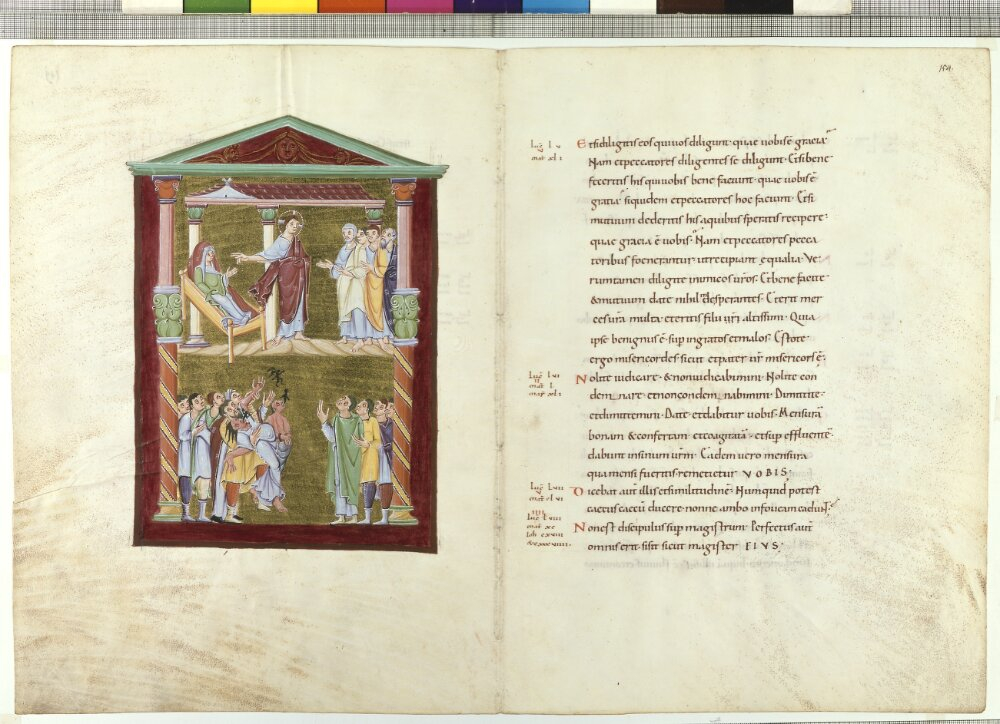 154.
Et si diligitis eos qui uos diligunt· quae uobis ē gracia?
Nam et peccatores diligentes se diligunt· Et si bene
feceritis his qui uobis bene faciunt· quae uobis ē
gratia· siquidem et peccatores hoc faciunt· Et si
mutuum dederitis his a quibus speratis recipere·
quae gracia ē uobis· Nam et peccatores pecca
toribus foenerantur· ut recipiant equalia· Ve
rumtamen diligite inimicos uros· Et bene facite
& mutuum date nihil desperantes· Et erit mer
ces ura multa· et eritis filii altissimi· Quia
ipse benignus ē· sup ingratos et malos· Estote
ergo misericordes sicut et pater ur misericors ē·
Nolite iudicare· & non iudicabimini· Nolite con
demnare· et non condemnabimini· Dimittite·
et dimittemini· Date· et dabitur uobis· Mensurā
bonam & confertam· et coagitatā· et sup effluentē·
dabunt in sinum urm· Eadem uero mensura
qua mensi fueritis· remetietur VOBIS·
Dicebat aut illis et similitudinē· Numquid potest
caecus caecū ducere· nonne ambo in foueam cadunt?
Non est discipulus sup magistrum· Perfectus aut
omnis erit· si sit sicut magister EIVS·